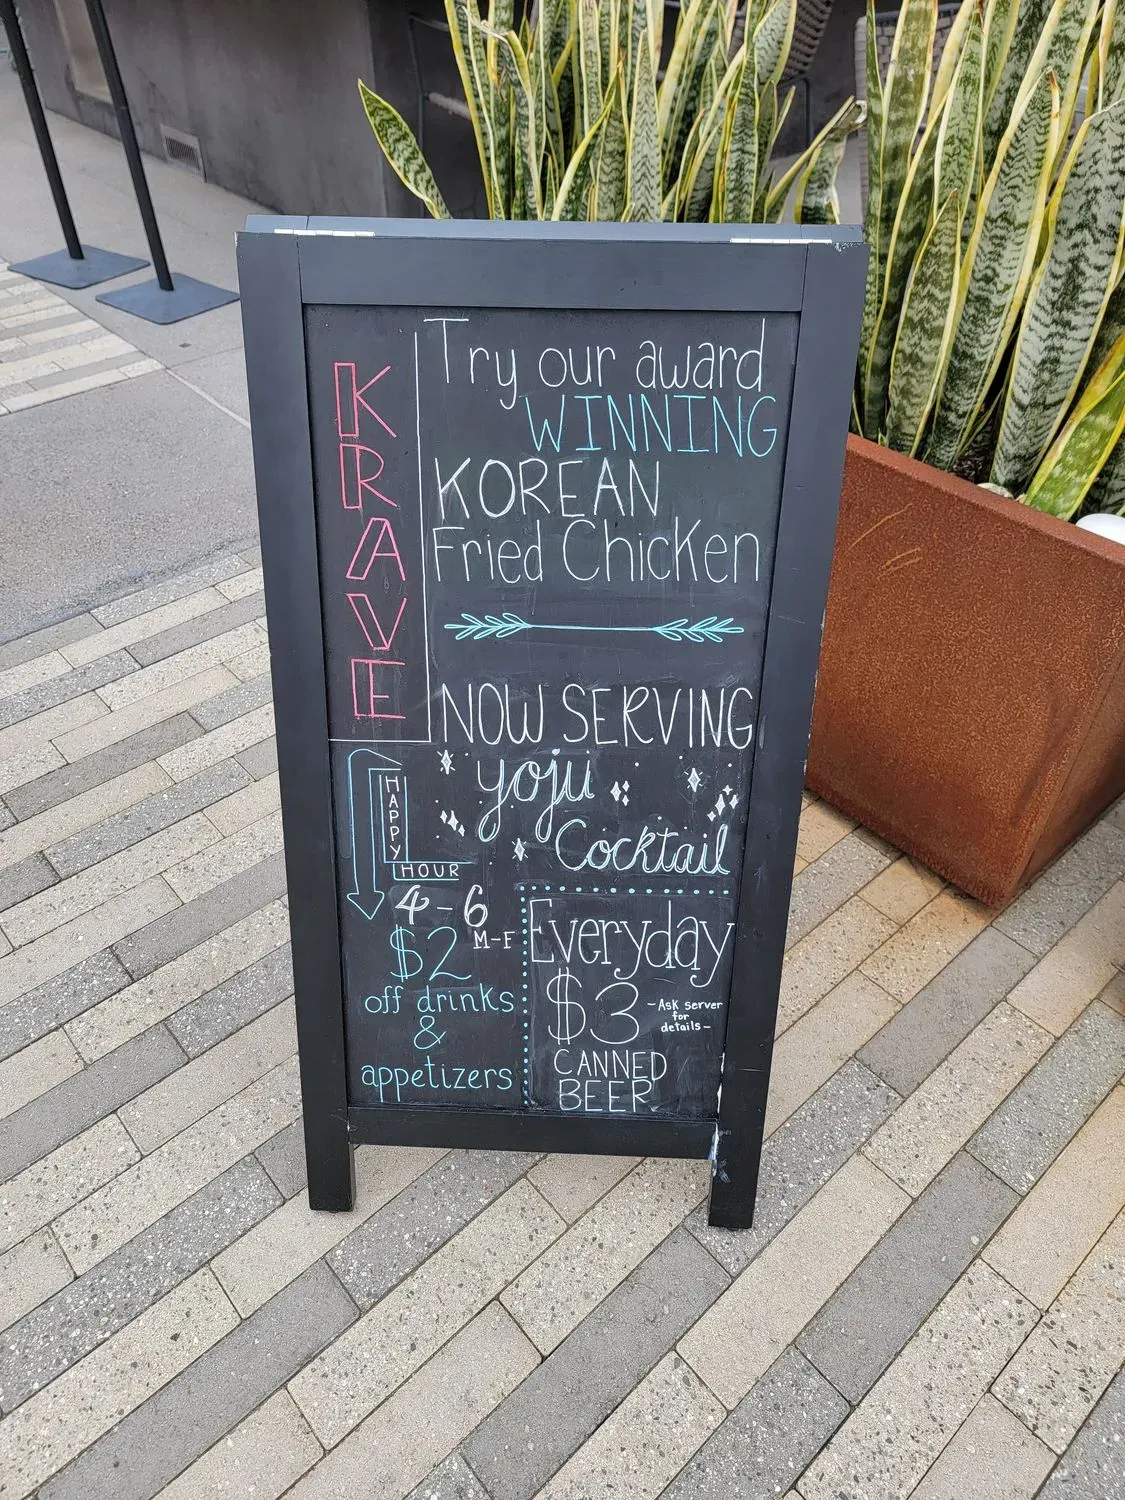 KRAVE
Try our award
WINNING
KOREAN
Fried Chicken
NOW SERVING
yoju
Cocktail
HAPPY
HOUR
4-6
M-F
$2
off drinks
&
appetizers
Everyday
$3
-Ask server
for
details-
CANNED
BEER